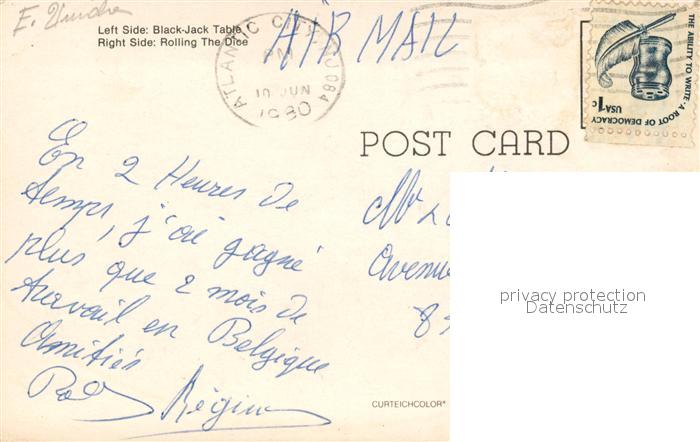 Left Side: Black-Jack Table
Right Side: Rolling The Dice
AIR MAIL
ATLANTIC CITY NJ 084
PM
10 JUN
1980
THE ABILITY TO WRITE·A ROOT OF DEMOCRACY
USA 1c
POST CARD
En 2 Heures de
temps, j'ai gagné
plus que 2 mois de
travail en Belgique
Amitiés
Régin
Avenu
privacy protection
Datenschutz
CURTEICHCOLOR®